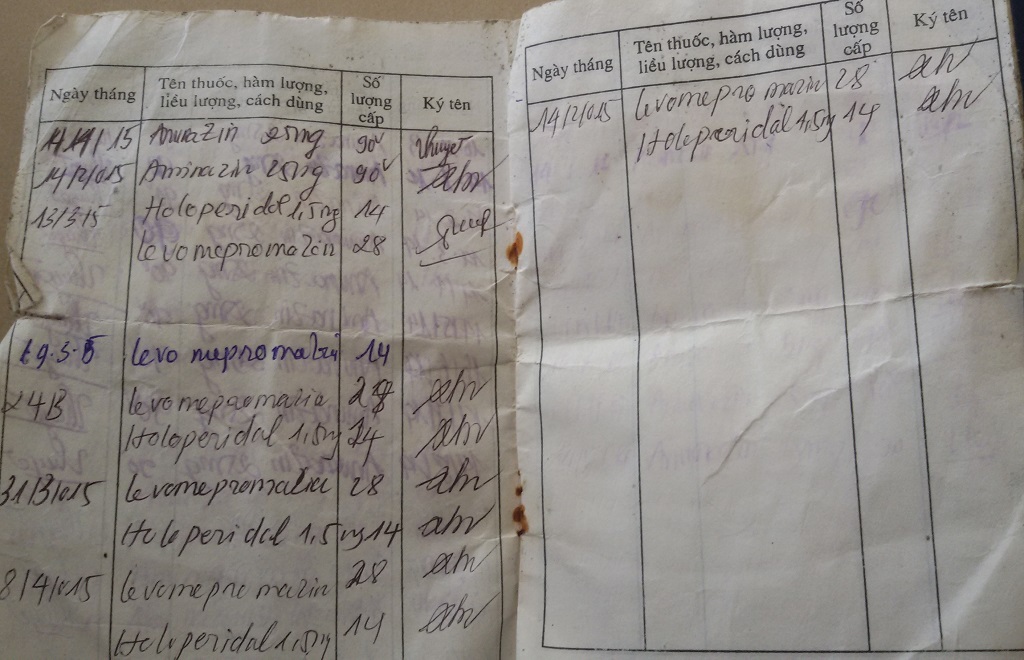 Ngày tháng Tên thuốc, hàm lượng, liều lượng, cách dùng Số lượng cấp Ký tên
14/1/15 Aminazin 25mg 90v
14/2/015 Aminazin 25mg 90v
13/3/15 Holoperidol 1,5mg 14
Levomepromazin 28
19.3.5 Levo mepromazin 14
24/3 Levomepromazin 28
Holoperidal 1,5mg 14
31/3/015 Levomepromazin 28
Holoperidal 1,5mg 14
8/4/015 Levomepromazin 28
Holoperidal 1,5mg 14
Ngày tháng Tên thuốc, hàm lượng, liều lượng, cách dùng Số lượng cấp Ký tên
Levomepromazin 28
Holoperidal 1,5mg 14